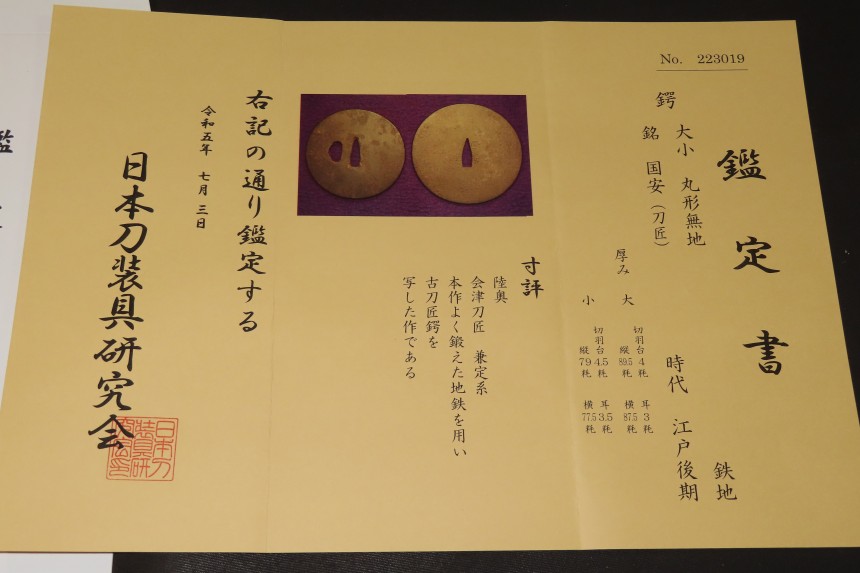 No. 223019
鑑定書
鉄地
鍔 大小 丸形無地
銘 国安(刀匠)
時代 江戸後期
厚み
大 切羽台4粍 耳3粍
縦89.5粍 横87.5粍
小 切羽台4.5粍 耳3.5粍
縦79粍 横77.5粍
寸評
陸奥
会津刀匠 兼定系
本作よく鍛えた地鉄を用い
古刀匠鍔を
写した作である
右記の通り鑑定する
令和五年 七月 三日
日本刀装具研究会
日本刀
装具研